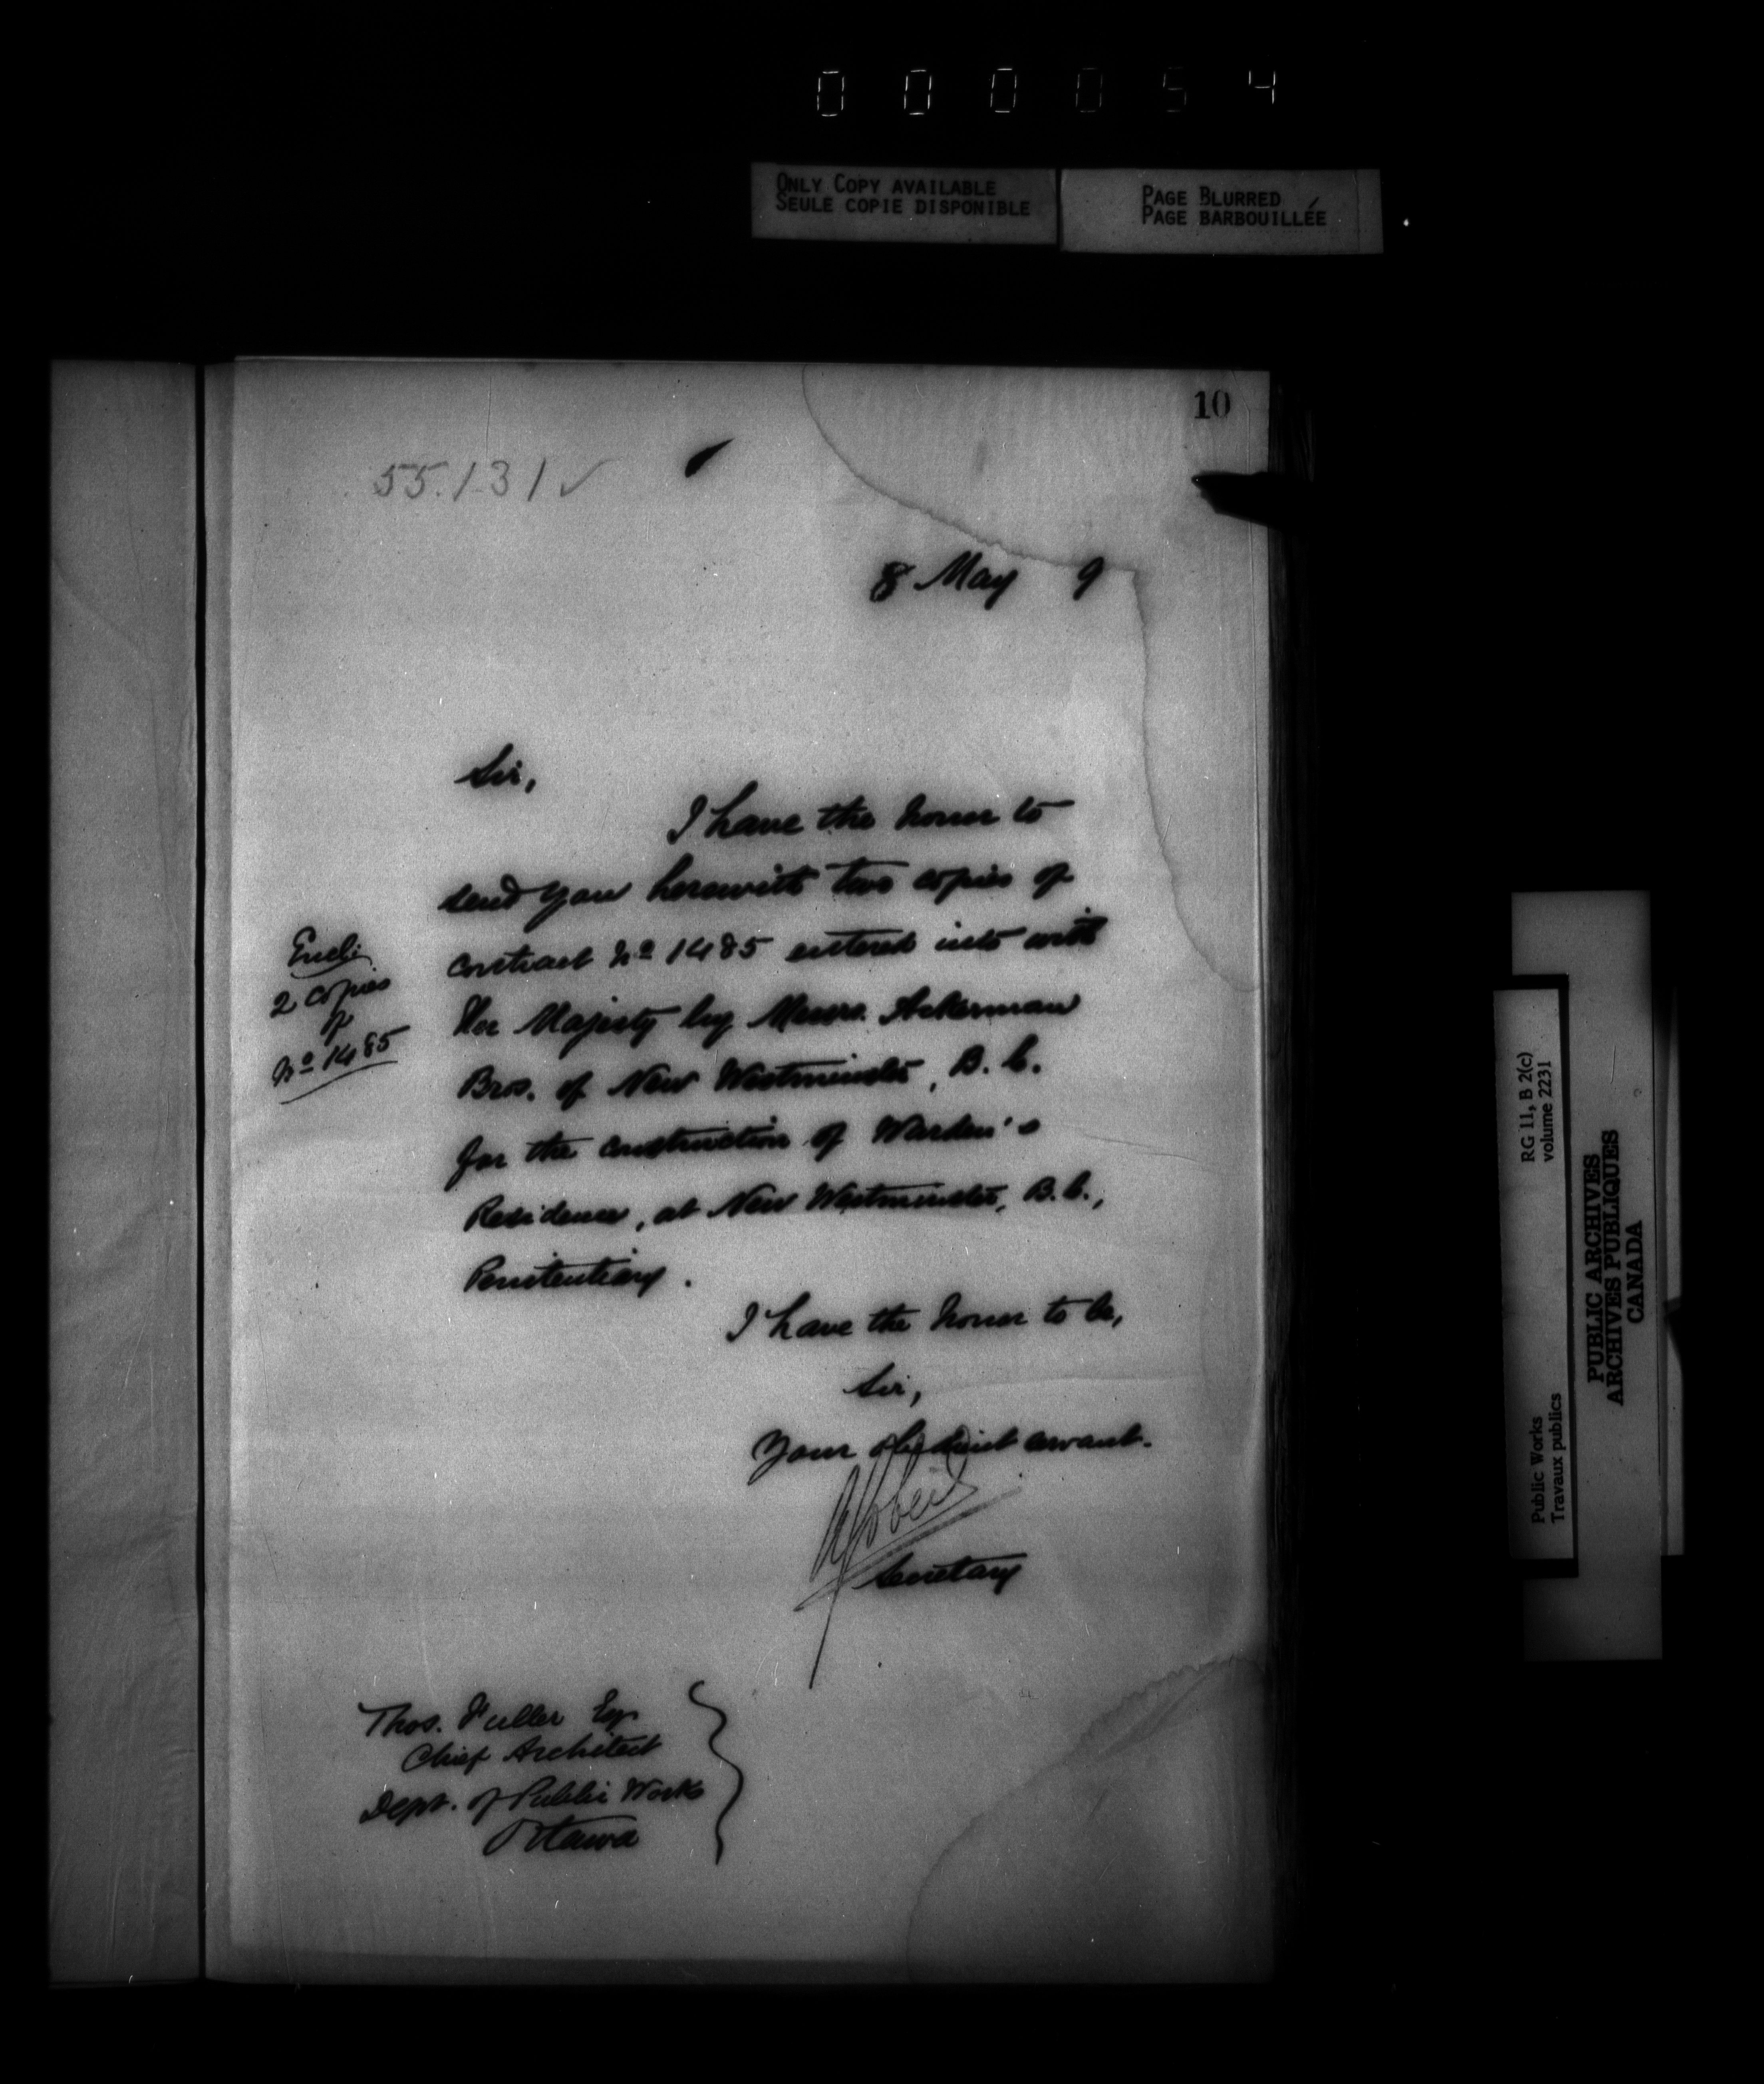 000054
ONLY COPY AVAILABLE
SEULE COPIE DISPONIBLE
PAGE BLURRED
PAGE BARBOUILLÉE
10
55.131 ✓
8 May 9
Sir,
I have the honor to
send you herewith two copies of
contract No 1485 entered into with
Her Majesty by Messrs. Ackerman
Bros. of New Westminster, B.C.
for the construction of Warden's
Residence, at New Westminster, B.C.,
Penitentiary.
Encl:
2 copies
of
No 1485
I have the honor to be,
Sir,
Your obedient servant.
Secretary
Thos. Fuller Esq.
Chief Architect
Dept. of Public Works
Ottawa
RG 11, B 2(c)
volume 2231
Public Works
Travaux publics
PUBLIC ARCHIVES
ARCHIVES PUBLIQUES
CANADA